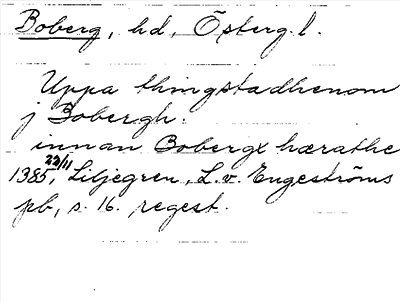 Boberg, hd, Österg. l.
Uppa thingstadhenom
j Bobergh.
innan Bobergx hærathe
1385 23/11, Liljegren, L. v. Engeströms
pb, s. 16. regest.